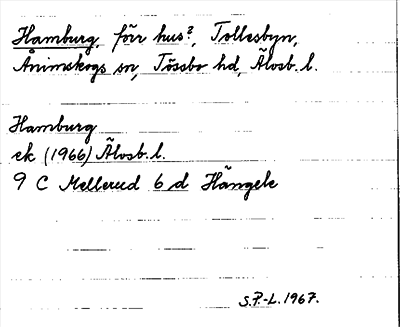 Hamburg, förr hus?, Tollesbyn,
Ånimskogs sn, Tössbo hd, Älvsb. l.
Hamburg
ek (1966) Älvsb. l.
9 C Mellerud 6 d Hängele
S.P.-L. 1967.